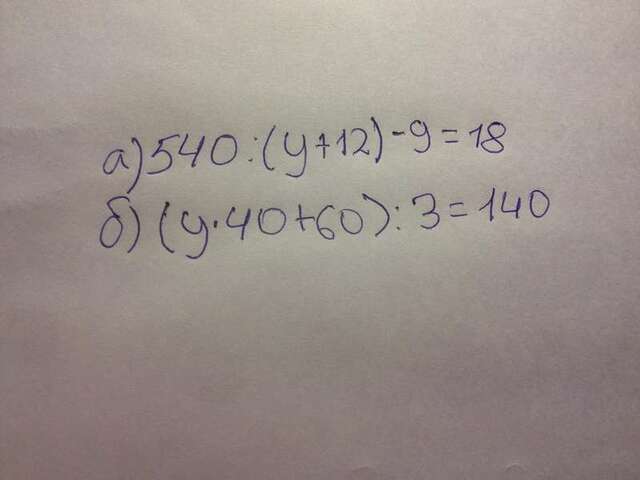 а) 540:(y+12)-9=18
б) (y·40+60):3=140